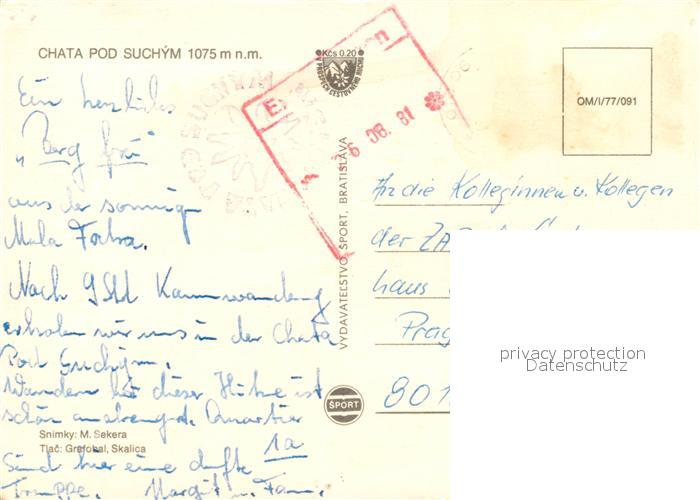 CHATA POD SUCHÝM 1075 m n.m.
Ein herzliches
„Berg frei"
aus der sonnigen
Mala Fatra.
Nach 9 Std Kammwanderung
erholen wir uns in der Chata
Pod Suchým.
Wandern bei dieser Hitze ist
schön anstrengd. Quartier
1a
Sind hier eine dufte
Truppe. Margit u. Fam.
Snímky: M. Sekera
Tlač: Grafobal, Skalica
Kčs 0.20
V PROSPECH CESTOVNÉHO RUCHU
06. 08. 81
VYDAVATEĽSTVO ŠPORT, BRATISLAVA
ŠPORT
OM/I/77/091
An die Kolleginnen u. Kollegen
der
haus
Prag
801
privacy protection
Datenschutz